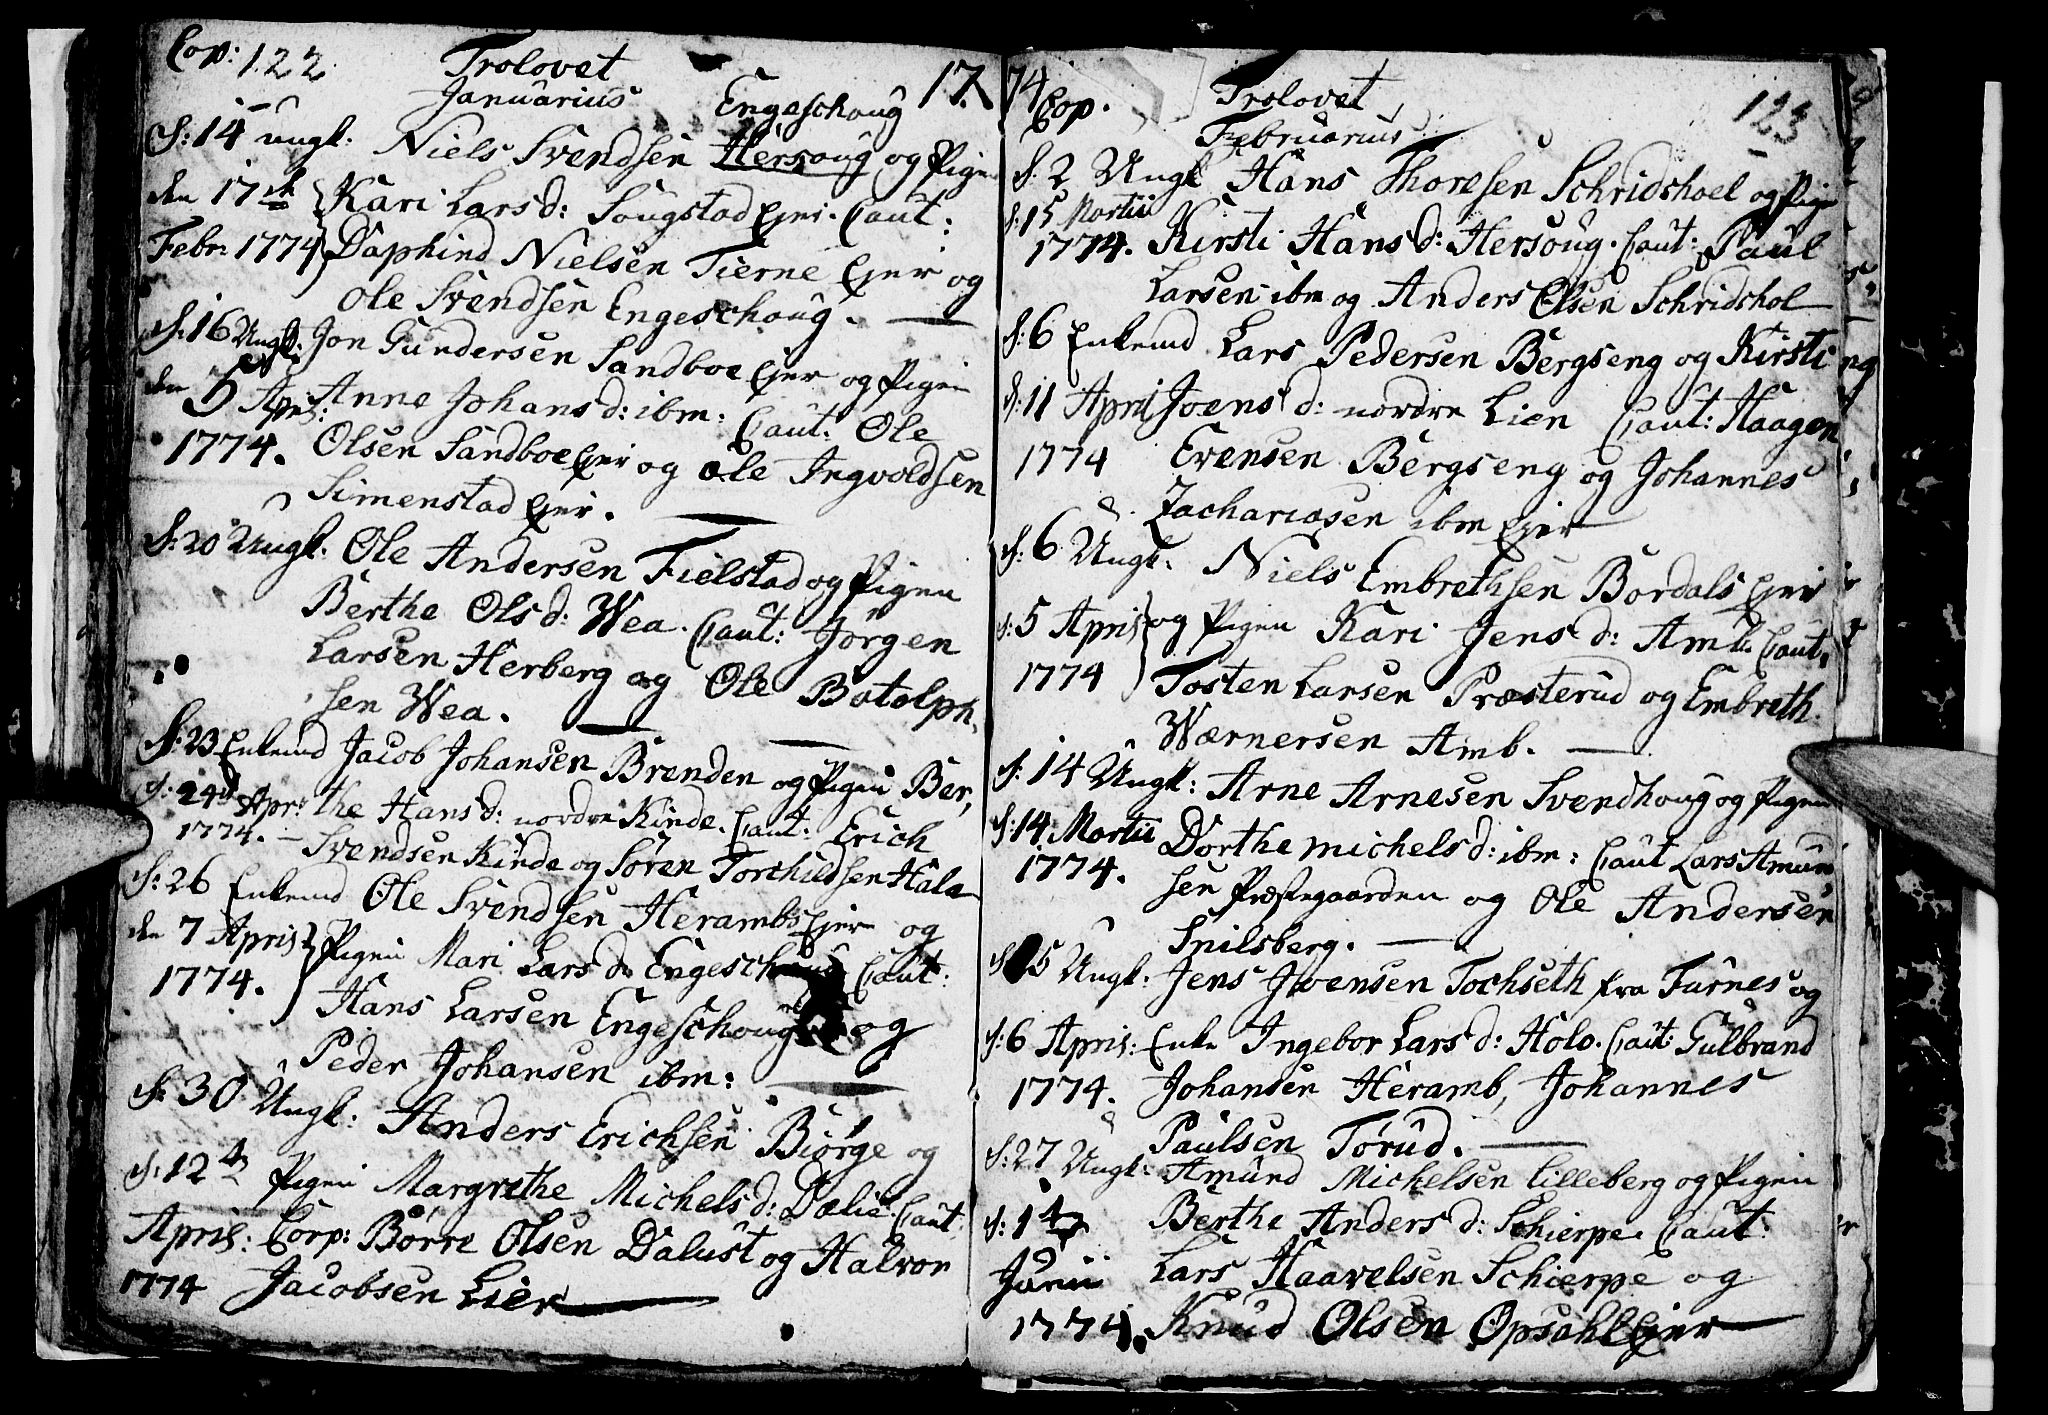 Cop: 122 Trolovet 17
Januarius Engeschoug
S: 14 ungk: Niels Svendsen Hersoug og Pigen
den 17de Kari Larsd: Sougstad Ejer. Caut:
Febr: 1774 Daphind Nielsen Tierne Ejer og
Ole Svendsen Engeschoug.
S: 16 Ungk: Jon Gundersen Sandboe Ejer og Pigen
den 5 April: Anne Johansd: ibm: Caut: Ole
1774. Olsen Sandboe Ejer og Ole Ingvoldsen
Simenstad Ejer.
S: 20 Ungk. Ole Andersen Fielstad og Pigen
Berthe Olsd: Wea. Caut: Jørgen
Larsen Herberg og Ole Botolph
sen Wea.
S: 23 Enkemd Jacob Johansen Brenden og Pigen Ber,
S: 24de Apr: the Hansd: nordre Kinde. Caut: Erich
1774. Svendsen Kinde og Søren Torchildsen Hala
S: 26 Enkemd Ole Svendsen Herambs Ejer og
den 7 April Pigen Mari Larsd: Engeschoug Caut:
1774. Hans Larsen Engeschoug og
Peder Johansen ibm:
S: 30 Ungk: Anders Erichsen Biørge og
S: 12te Pigen Margrethe Michelsd: Dælie. Caut:
April: Corp: Børre Olsen Dalust og Halvor
1774 Jacobsen Lier
74 Cop. Trolovet 123
Februarius
S. 2 Ungk Hans Thoresen Schridshoel og Pige
S: 15 Martii
1774. Kirsti Hansd: Hersoug. Caut: Paul
Larsen ibm og Anders Olsen Schridshol
S: 6 Enkemd Lars Pedersen Bergseng og Kirsti
S: 11 April Joensd: nordre Lien Caut: Haagen
1774 Evensen Bergseng og Johannes
Zachariasen ibm Ejer
S: 6 Ungk. Niels Embrethsen Bordals Ejer
S: 5 April og Pigen Kari Jensd: Amb. Caut.
1774 Tosten Larsen Præsterud og Embreth
Wærnersen Amb.
S: 14 Ungk: Arne Arnesen Svendhoug og Pigen
S: 14 Martii Dorthe Michelsd: ibm: Caut Lars Amund
1774. sen Præstegaarden og Ole Andersen
Snilsberg.
S 15 Ungk: Jens Joensen Tochseth fra Furnes og
S: 6 April: Enke Ingebor Larsd: Holo. Caut: Gulbrand
1774. Johansen Heramb, Johannes
Paulsen Torud.
S: 27 Ungk: Amund Michelsen Lilleberg og Pigen
S: 14 Berthe Andersd: Schierpe. Caut:
Junii Lars Haavelsen Schierpe og
1774. Knud Olsen Opsahl Ejer